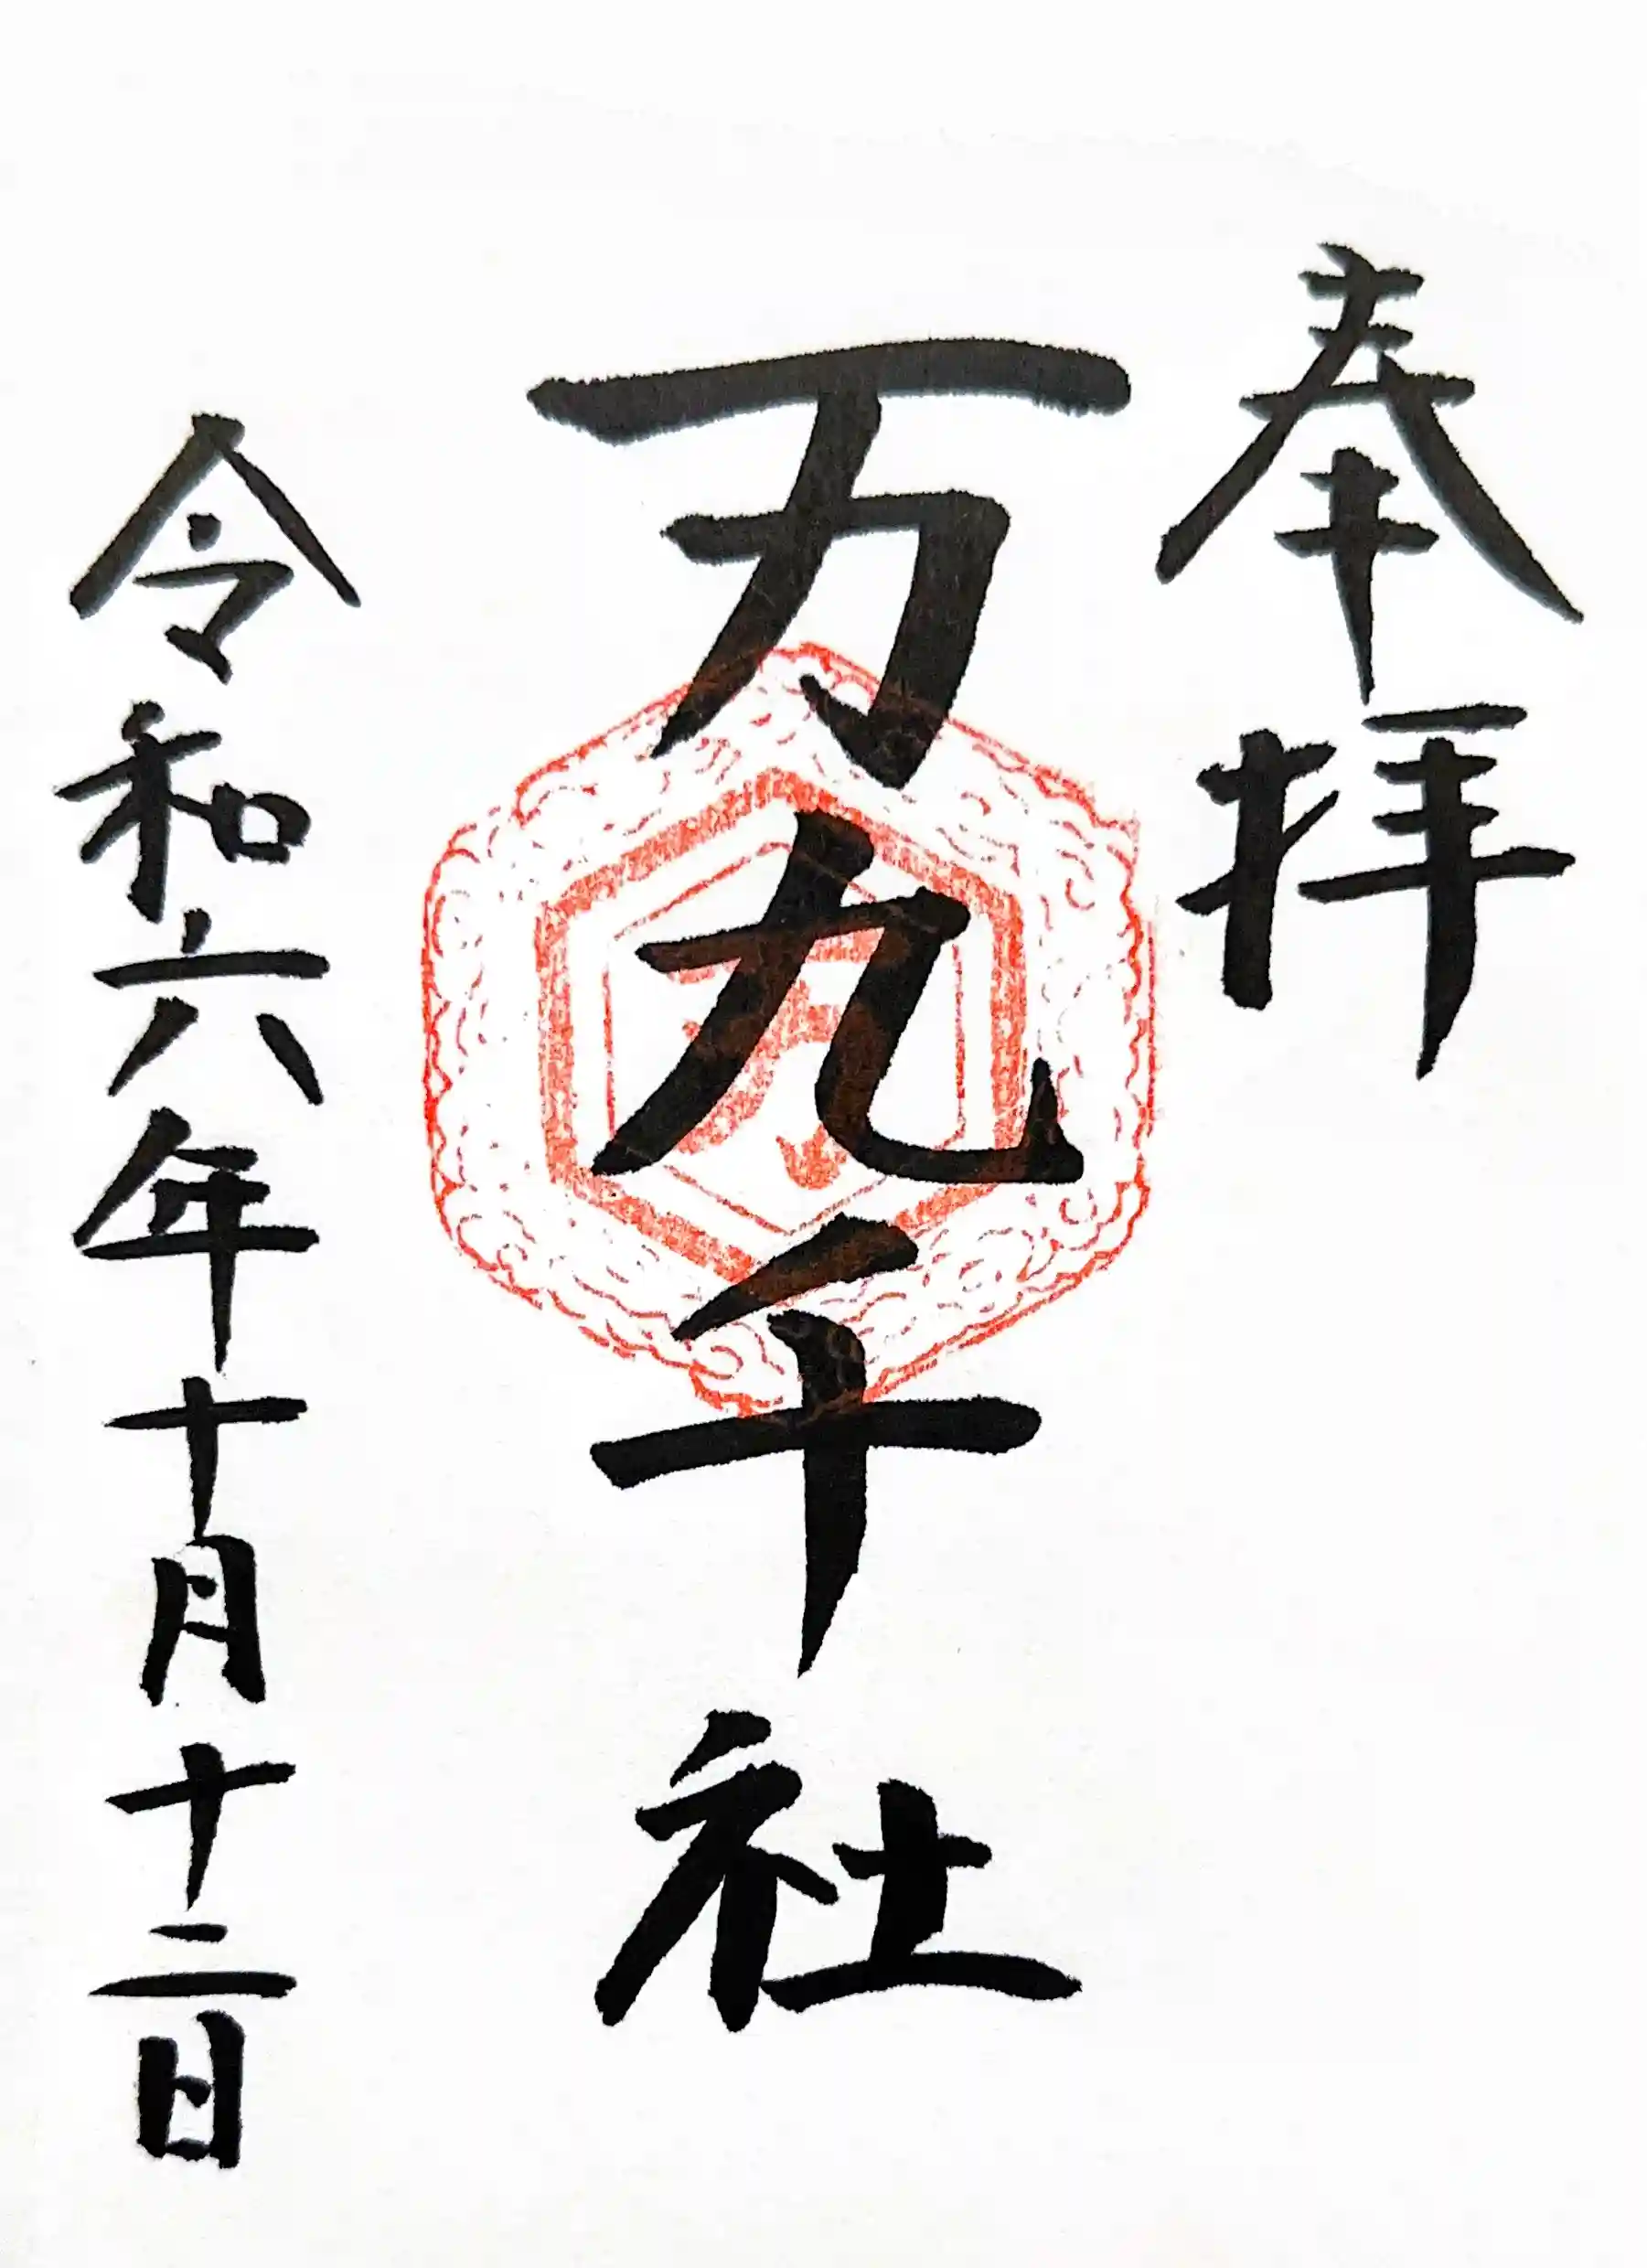 奉拝
万九千社
令和六年十月十二日